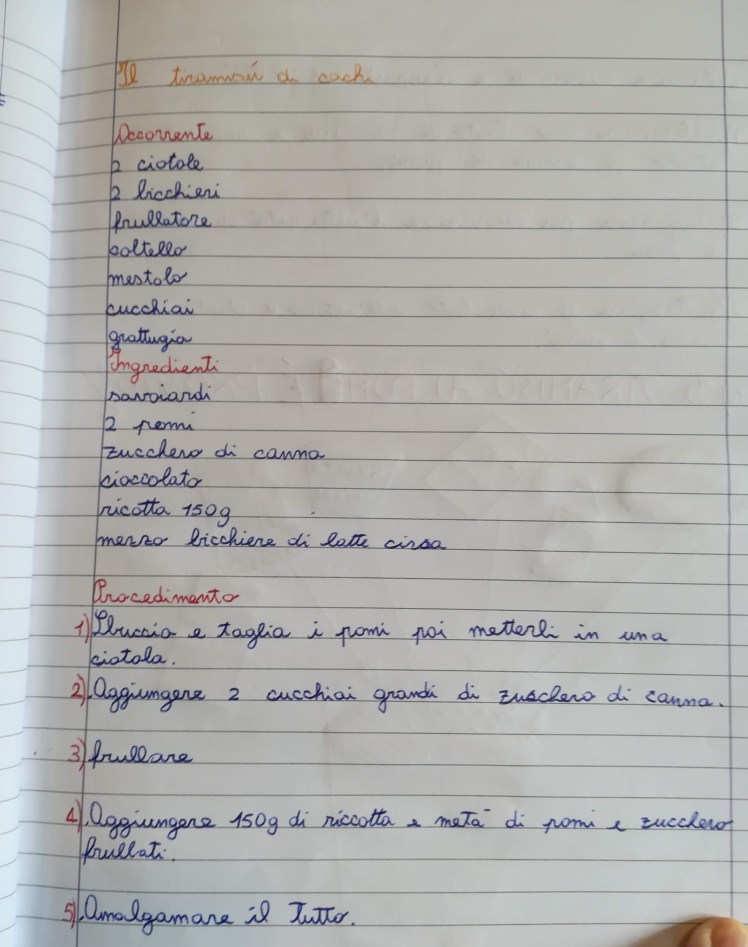 Il tiramisú di cachi
Occorrente
2 ciotole
2 bicchieri
frullatore
coltello
mestolo
cucchiai
grattugia
Ingredienti
savoiardi
2 pomi
zucchero di canna
cioccolato
ricotta 150g
mezzo bicchiere di latte circa
Procedimento
1) Sbuccia e taglia i pomi poi metterli in una
ciotola.
2) Aggiungere 2 cucchiai grandi di zucchero di canna.
3) frullare
4) Aggiungere 150g di riccotta e metà di pomi e zucchero
frullati.
5) Amalgamare il Tutto.